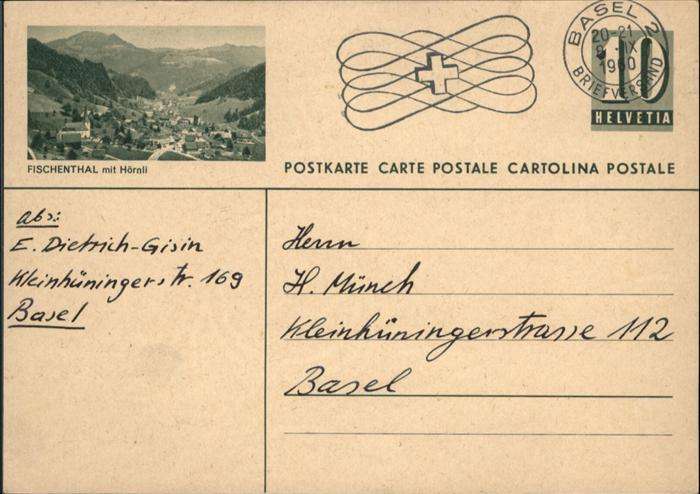 BASEL 2
20-21
9. IX
1960
BRIEFVERSAND
10
HELVETIA
FISCHENTHAL mit Hörnli
POSTKARTE CARTE POSTALE CARTOLINA POSTALE
Abs:
E. Dietrich-Gisin
Kleinhüningerstr. 169
Basel
Herrn
H. Münch
Kleinhüningerstrasse 112
Basel